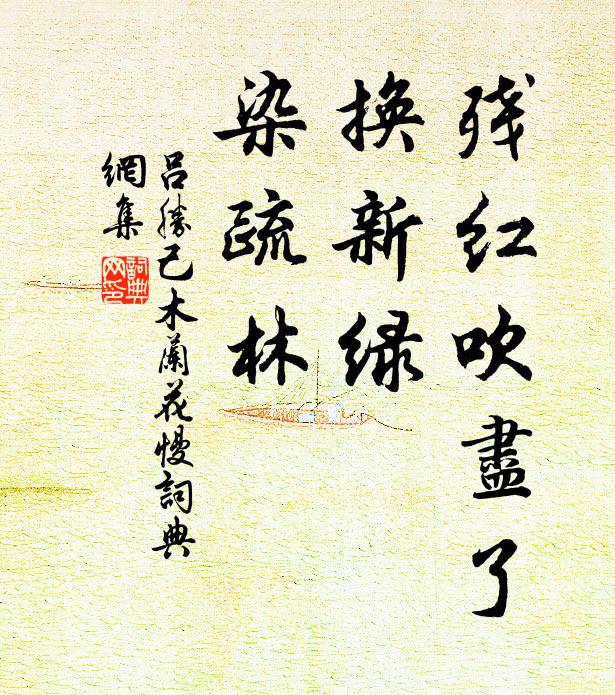 残红吹盡了
換新绿
染疏林
呂勝己木蘭花慢詞典
網集
詞典
网印